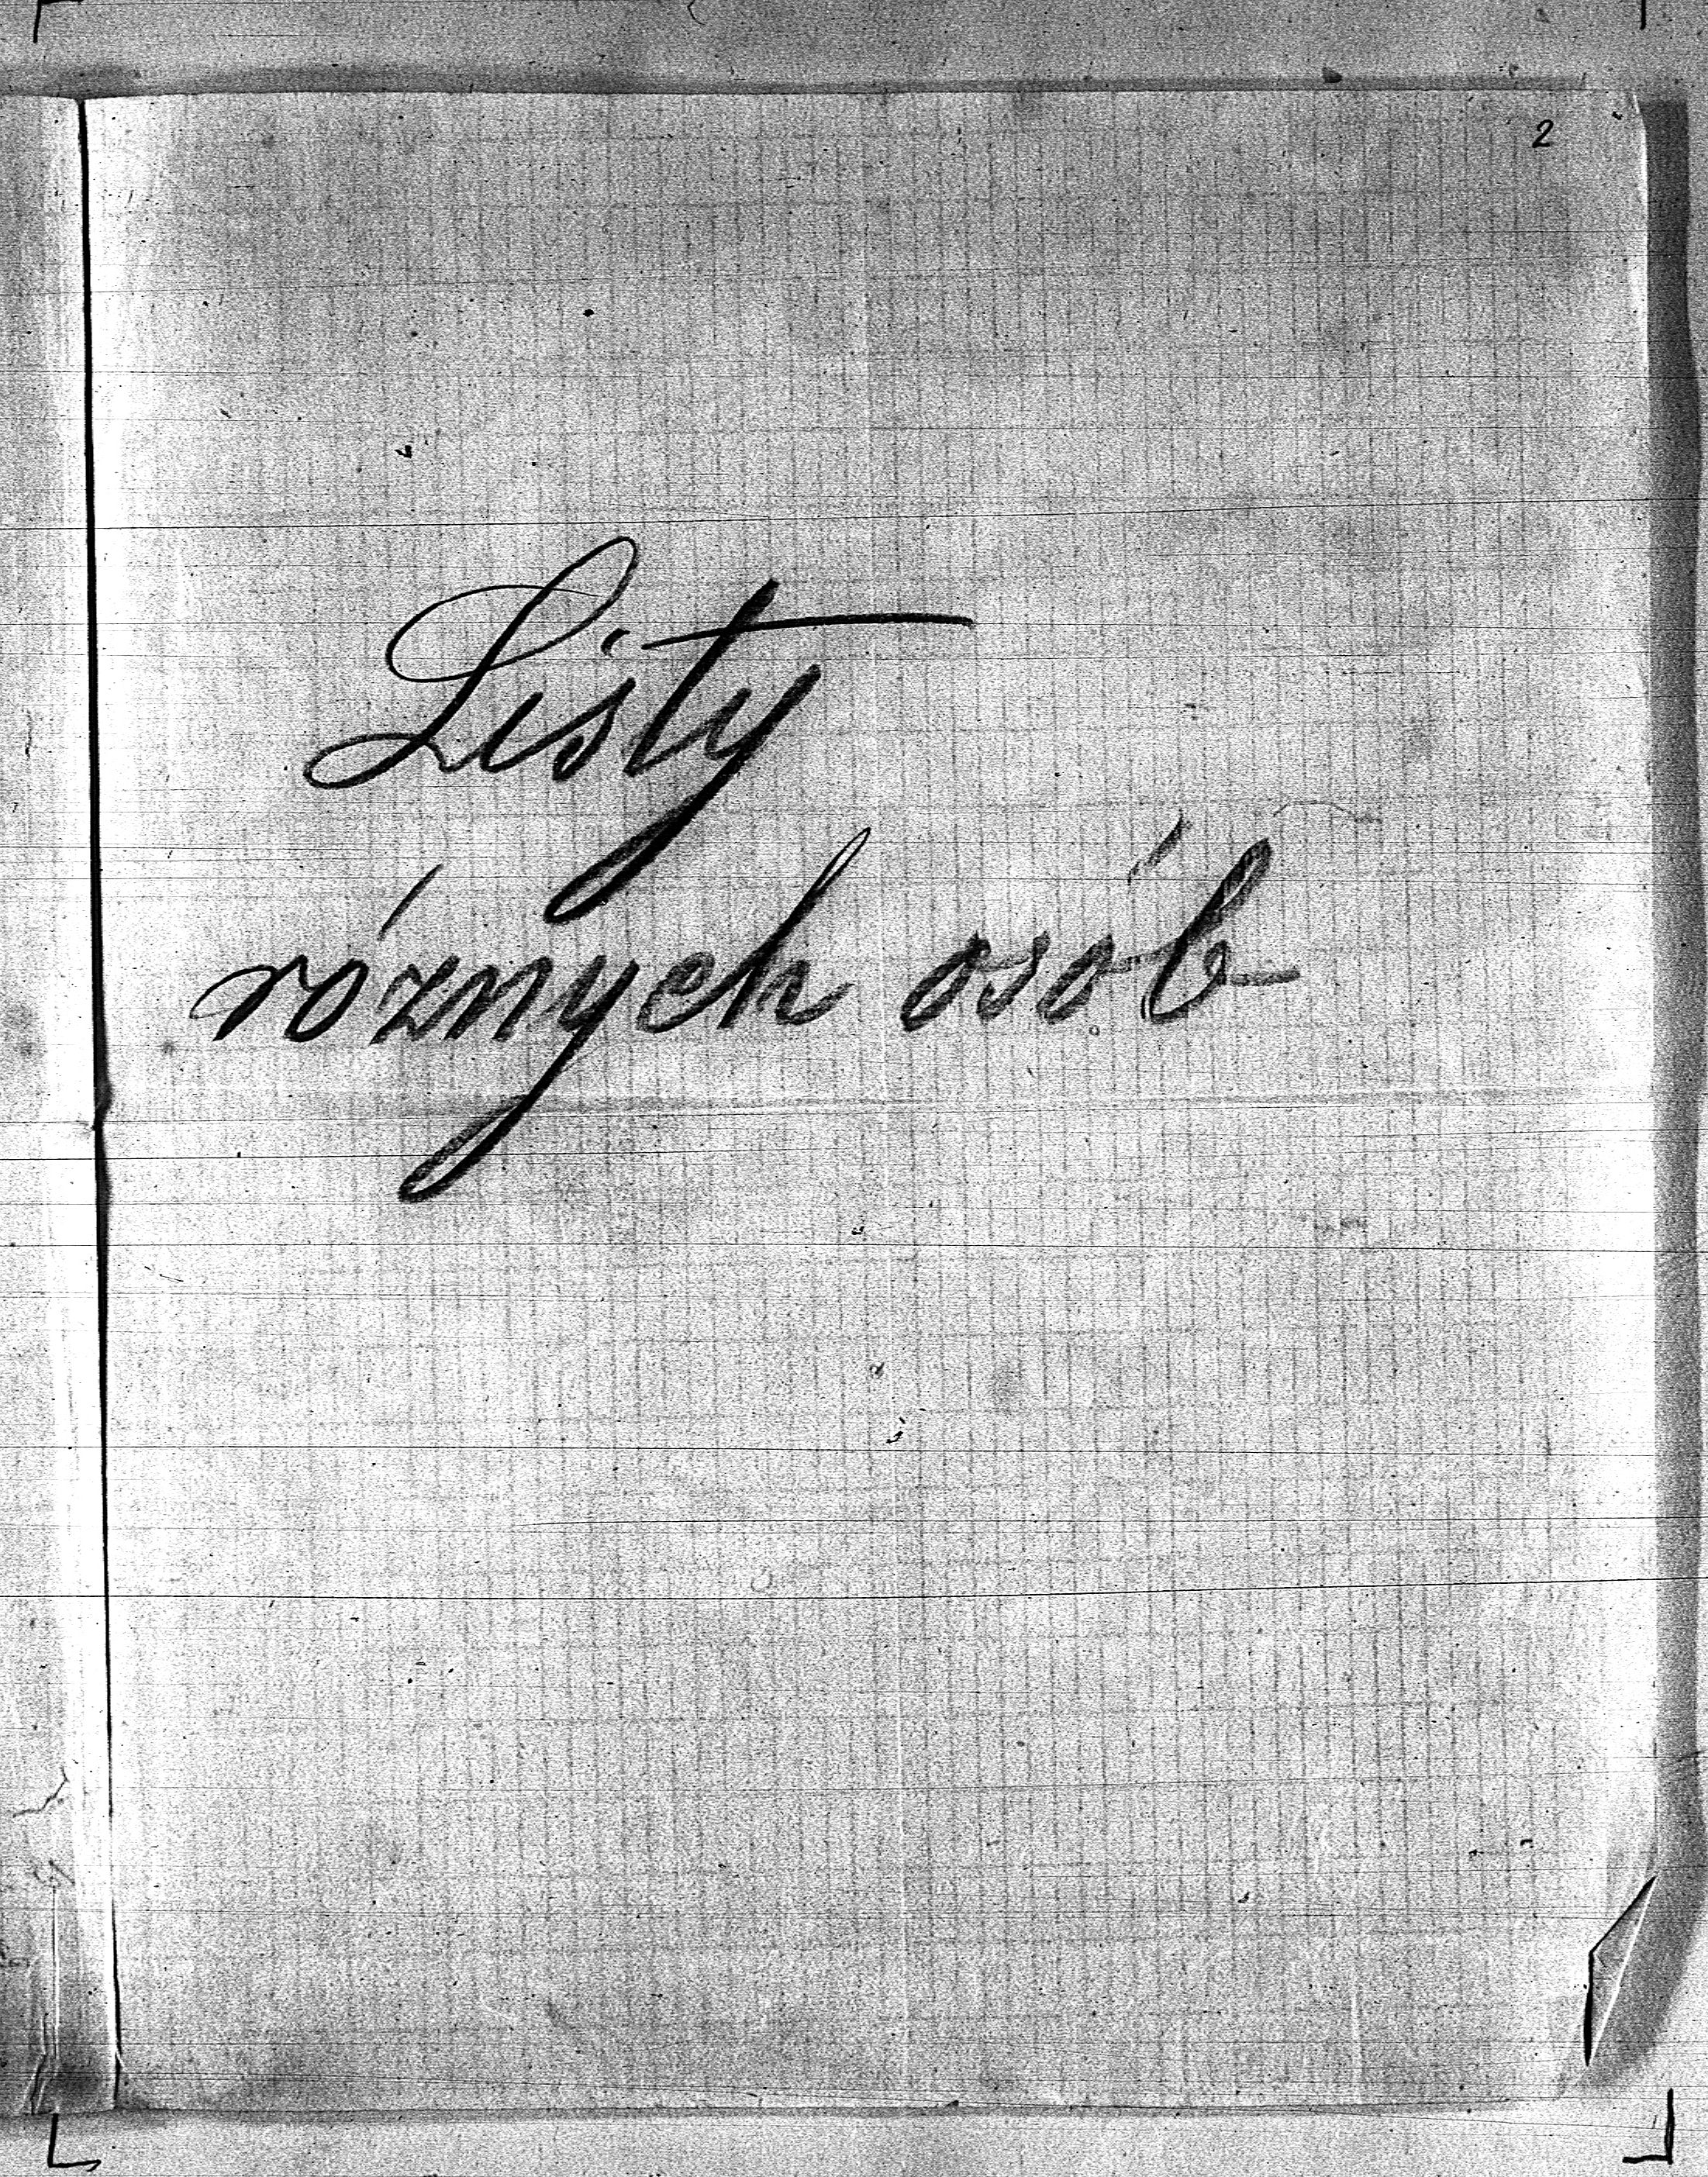 2
Listy
róznych osób